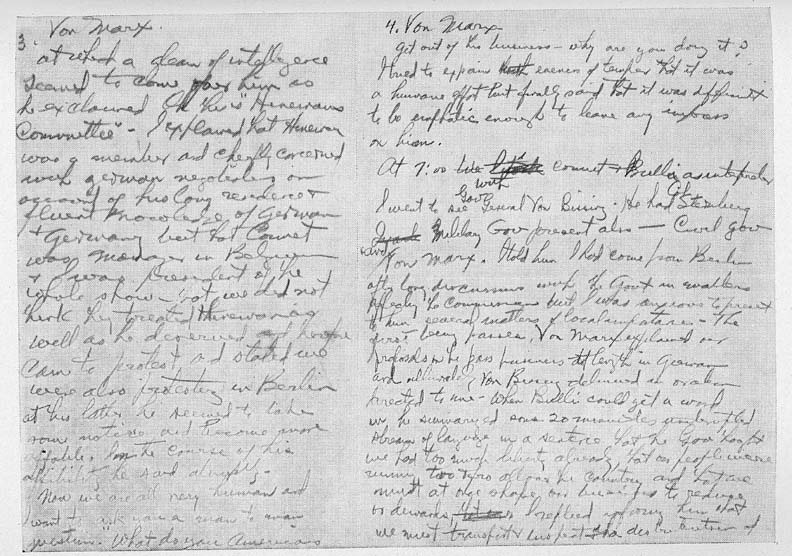 3. Von Marx.
at which a gleam of intelligence
seemed to come over him as
he exclaimed Oh this is Hineman's
Committee" - I explained that Hineman
was a member and chiefly concerned
with german negotiations on
account of his long residence &
fluent knowledge of German
& Germany but that Connet
was manager in Belgium
& I was president of the
whole show - that we did not
think they treated Hineman as
well as he deserved and
came to protest and stated we
were also protesting in Berlin
at this latter he seemed to take
some notice and become more
In the course of his
he said abruptly -
Now we are all very human and
I want to ask you a man to man
question. "What do you Americans
4. Von Marx
get out of this business - why are you doing it?
I tried to explain with evenness of temper that it was
a humane effort but finally said that it was difficult
to be emphatic enough to leave any impress
on him.
At 7:00 connet & Bullie as interpreter
with
Gov
I went to see General Von Bissing. He had
Military Gov present also - Civil gov
Von Marx. I told him I had come from Berlin
after long discussions with the Govt on matters
to Commission but I was anxious to present
to him several matters of local importance - The
being passed, Von Marx explained our
proposals in the pass business at length in German
and Von Bissing delivered an oration
directed to me - When Bullie could get a word
in he summarized some 20 minutes uninterrupted
stream of language in a sentence that the Gov thought
we had too much liberty already that our people were
running too &fro all over the country and that we
must at once shape our business to reduce
our demands I replied that
we must transport & inspect the distribution of